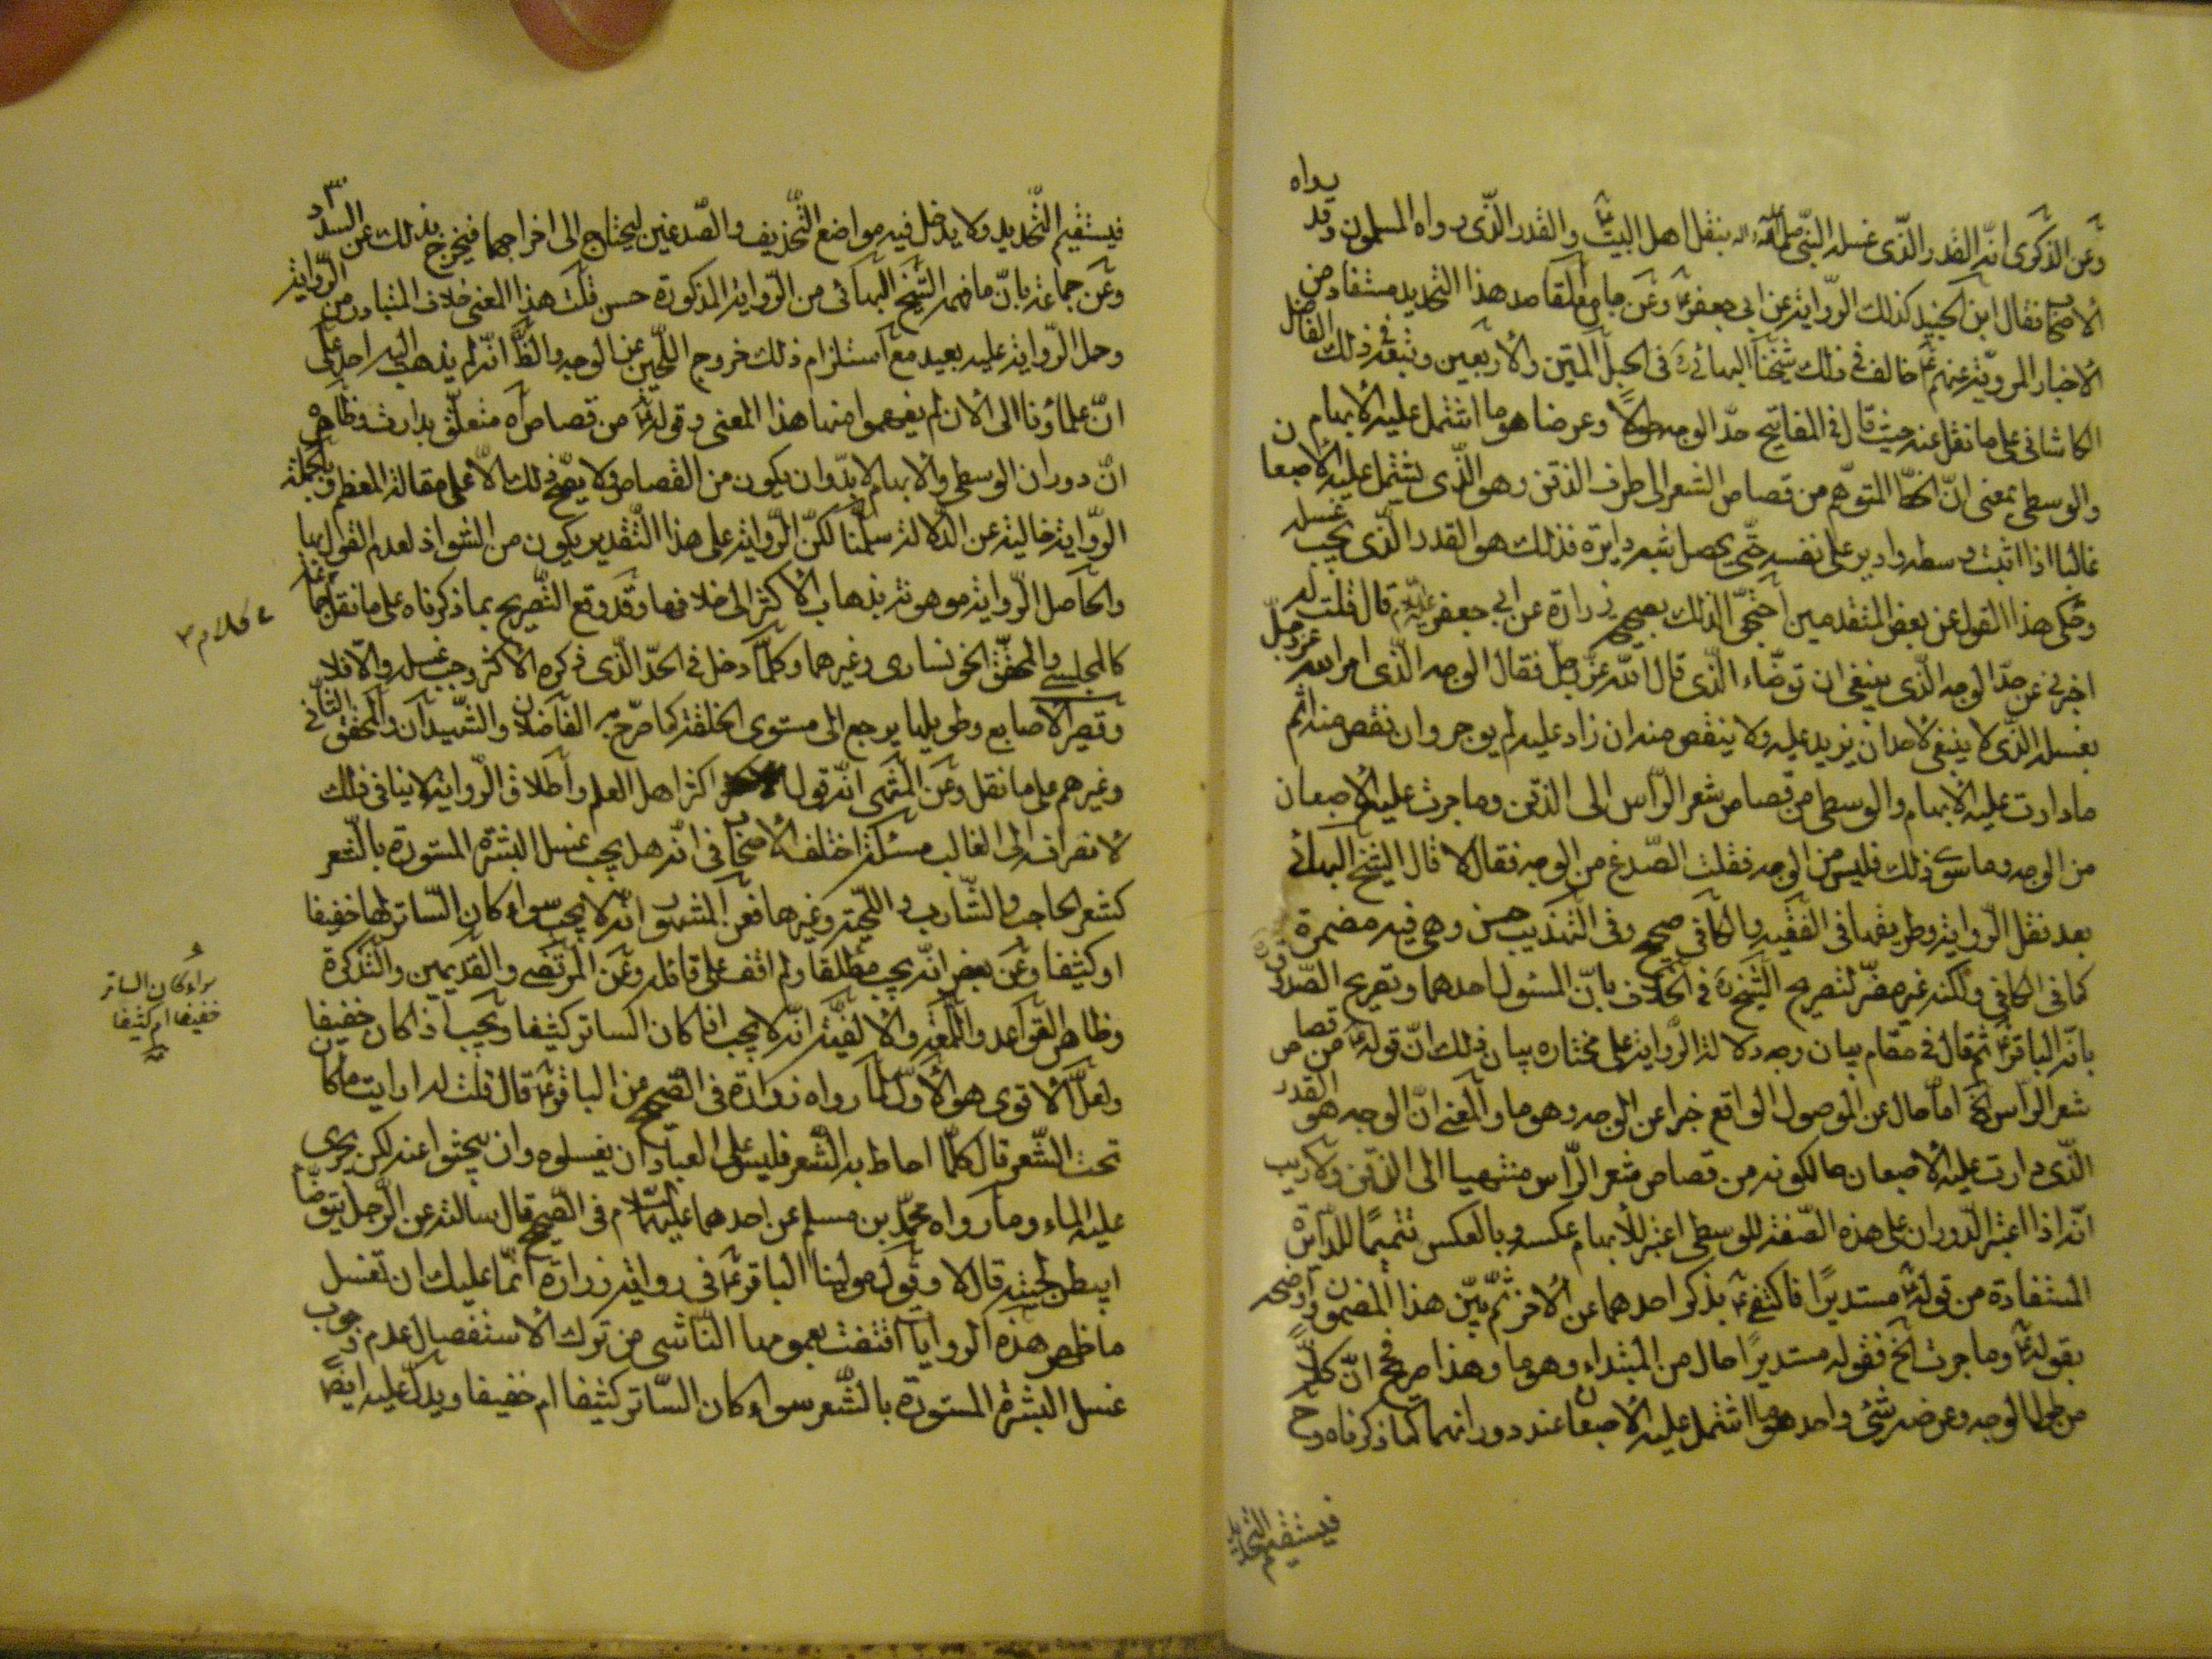 وعن الذكرى انه القدر الذى غسله النبى صلى الله عليه واله بنقل اهل البيت ع والقدر الذى رواه المسلمون وقد رواه
الاصحاب فقال ابن الجنيد كذلك الرواية عن ابى جعفر ع وعن جامع المقاصد هذا التحديد مستفاد من
الاخبار المروية عنهم ع خالف فى ذلك شيخنا البهائى ره فى الحبل المتين والاربعين وتبعه فى ذلك الفاضل
الكاشانى على ما نقل عنه حيث قال فى المفاتيح حد الوجه طولا وعرضا هو ما اشتمل عليه الابهام
والوسطى بمعنى ان الخط المتوهم من قصاص الشعر الى طرف الذقن وهو الذى يشتمل عليه الاصبعان
غالبا اذا اثبت وسطه وادير على نفسه حتى يحصل شبه دايرة فذلك هو القدر الذى يجب غسله
وحكى هذا القول عن بعض المتقدمين احتج الذلك بصحيح زرارة عن ابى جعفر عليه السلام قال قلت له
اخبرنى عن حد الوجه الذى ينبغى ان توضاء الذى قال الله عز وجل فقال الوجه الذى امر الله عز وجل
بغسله الذى لا ينبغى لاحد ان يزيد عليه ولا ينقص منه ان زاد عليه لم يوجر وان نقص منه اثم
ما دارت عليه الابهام والوسطى من قصاص شعر الراس الى الذقن وما جرت عليه الاصبعان
من الوجه وما سوى ذلك فليس من الوجه فقلت الصدغ من الوجه فقال لا قال الشيخ البهائى
بعد نقل الرواية وطريقها فى الفقيه والكافى صحيح وفى التهذيب حسن وهى فيه مضمرة
كما فى الكافى ولكنه غير مضر لتصريح الشيخ ره فى الخلاف بان المسئول احدهما وتصريح الصدوق
بانه الباقر ع ثم قال فى مقام بيان وجه دلالة الرواية على مختاره بيان ذلك ان قوله ع من قصاص
شعر الراس الخ اما حال عن الموصول الواقع خبرا عن الوجه وهو ما والمعنى ان الوجه هو القدر
الذى دارت عليه الاصبعان حالكونه من قصاص شعر الراس منتهيا الى الذقن ولا ريب
انه اذا اعتبر الدوران على هذه الصفة للوسطى اعتبر للابهام عكسه وبالعكس تتميما للدائرة
المستفادة من قوله ع مستديرا فاكتفى ع بذكر احدهما عن الاخر ثم بين هذا المضمون واوضحه
بقوله ع وما جرت الخ فقوله مستديرا حال من المبتداء وهو ما وهذا صريح فى ان كلا
من طول الوجه وعرضه شئ واحد هو ما اشتمل عليه الاصبعان عند دورانهما كما ذكرناه وح
فيستقيم التحديد
فيستقيم التحديد ولا يدخل فيه مواضع التحذيف والصدغين ليحتاج الى اخراجهما فيخرج بذلك عن السداد
وعن جماعة بان ما فهمه الشيخ البهائى من الرواية المذكورة حسن قلت هذا المعنى خلاف المتبادر من الرواية
وحمل الرواية عليه بعيد مع استلزام ذلك خروج اللحيين عن الوجه والظ انه لم يذهب اليه احد على
ان علماؤنا الى الان لم يفهموا منها هذا المعنى وقوله ع من قصاص اه متعلق بدارت وظاهره
ان دوران الوسطى والابهام لابد وان يكون من القصاص ولا يصح ذلك الا على مقالة المعظم وبالجملة
الرواية خالية عن الدلالة سلمنا لكن الرواية على هذا التقدير يكون من الشواذ لعدم القول بها
والحاصل الرواية موهونة بذهاب الاكثر الى خلافها وقد وقع التصريح بما ذكرناه على ما نقل جماعة
كالمجلسى والمحقق الخونسارى وغيرهما وكلما دخل فى الحد الذى ذكره الاكثر وجب غسله والا فلا
وقصير الاصابع وطويلها يرجع الى مستوى الخلقة كما صرح به الفاضلان والشهيدان والمحقق الثانى
وغيرهم على ما نقل وعن المنتهى انه قول اكثر اهل العلم واطلاق الرواية لا ينافى ذلك
لانصرافه الى الغالب مسئلة اختلف الاصحاب فى انه هل يجب غسل البشرة المستورة بالشعر
كشعر الحاجب والشارب واللحية وغيرها فعن المشهور انه لا يجب سواء كان الساتر لها خفيفا
او كثيفا وعن بعض انه يجب مطلقا ولم اقف على قائله وعن المرتضى والقديمين والتذكرة
وظاهر القواعد واللمعة والالفية انه لا يجب اذا كان الساتر كثيفا ويجب اذا كان خفيفا
ولعل الاقوى هو الاول لما رواه زرارة فى الصحيح عن الباقر ع قال قلت له ارايت ما كان
تحت الشعر قال كلما احاط به الشعر فليس على العباد ان يغسلوه وان يبحثوا عنه لكن يجرى
عليه الماء وما رواه محمد بن مسلم عن احدهما عليهما السلام فى الصحيح قال سالته عن الرجل يتوضأ
ايبطن لحيته قال لا وقول مولينا الباقر ع فى رواية زرارة انما عليك ان تغسل
ما ظهر هذه الروايات اقتضت بعمومها الناشى من ترك الاستفصال عدم وجوب
غسل البشرة المستورة بالشعر سواء كان الساتر كثيفا ام خفيفا ويدل عليه ايضا
سواء كان الساتر
خفيفا ام كثيفا